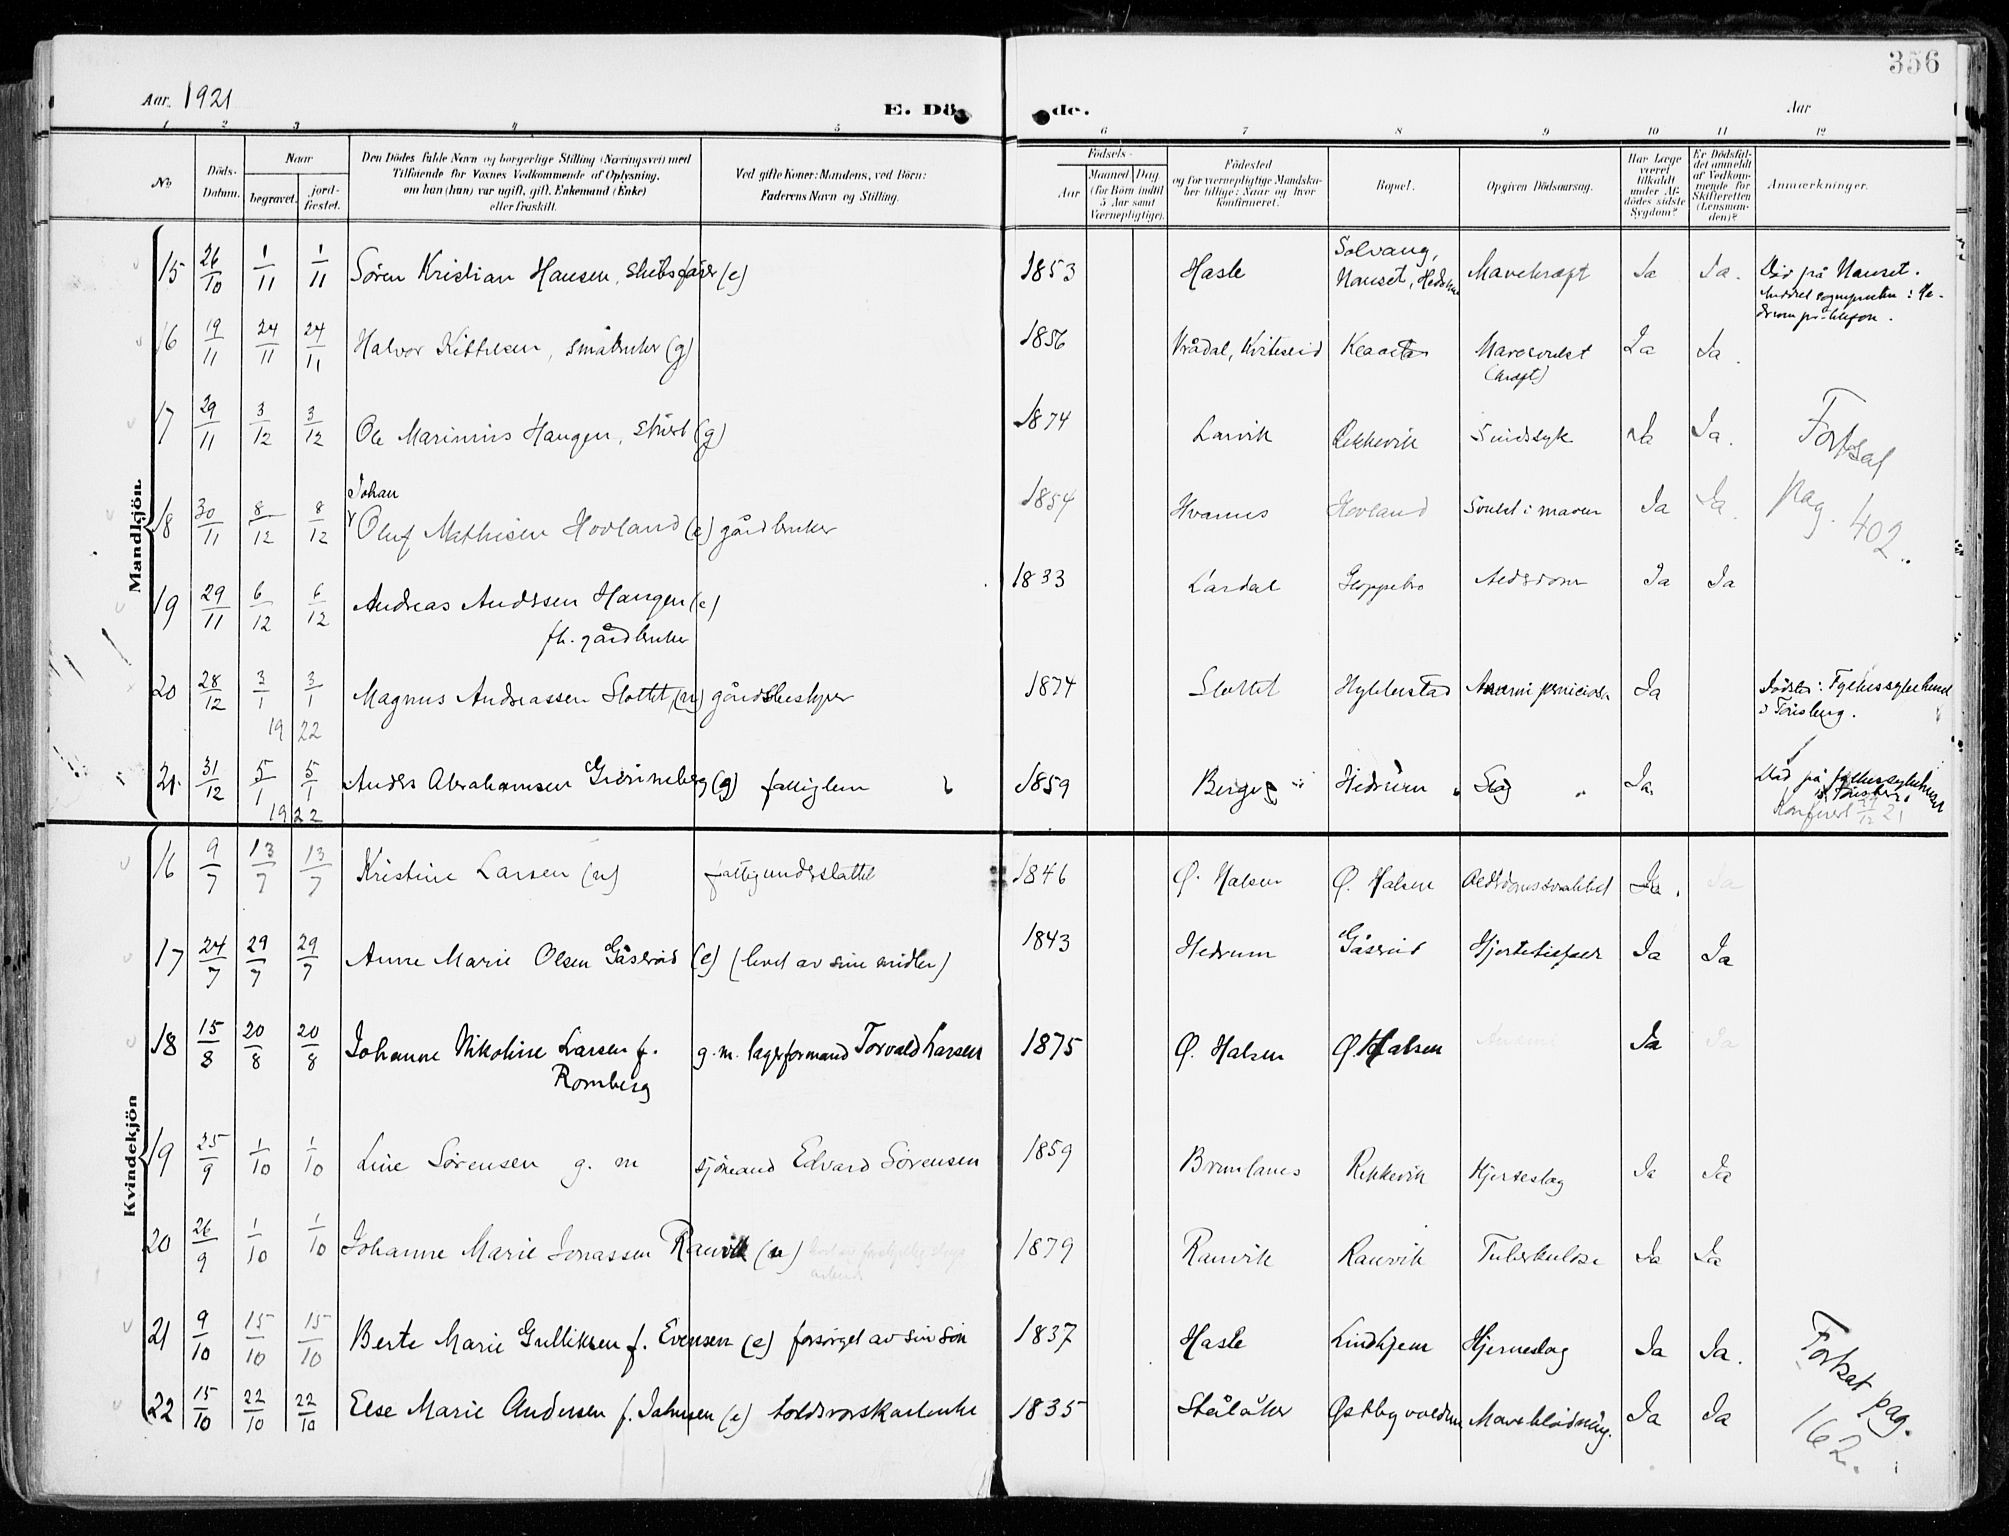 356
Aar. 1921
E. Dö de.
Aar
1 2 3 4 5 6 7 8 9 10 11 12
No.
Döds-
Datum.
Naar
begravet.
jord-
fæstet.
Den Dödes fulde Navn og borgerlige Stilling (Næringsvei) med
Tilföiende for Voxnes Vedkommende af Oplysning,
om han (hun) var ugift, gift, Enkemand (Enke)
eller fraskilt.
Ved gifte Koner: Mandens, ved Börn:
Faderens Navn og Stilling.
Födsels-
Aar
Maaned Dag
(for Börn indtil
5 Aar samt
Værnepligtige).
Födested
og for værnepligtige Mandska-
ber tillige: Naar og hvor
konfirmeret.
Bopæl.
Opgiven Dödsaarsag.
Har Læge
været
tilkaldt
under Af-
dödes sidste
Sygdom?
Er Dödsfal-
det anmeldt
af Vedkom-
mende for
Skifteretten
(Lensman-
den)?
Anmærkninger.
Mandkjön.
15 26/10 1/11 1/11 Sören Kristian Hansen, skibsfører (e) 1853 Hasle Solvang, Nanset, Hedrum Mavekræft Ja Ja. Död på Nanset.
16 19/11 24/11 24/11 Halvor Kittilsen, småbruker (g) 1856 Vrådal, Kviteseid Mavesvulst (kræft) Ja Ja.
17 29/11 3/12 3/12 Ole Marinius Haugen, (g) 1874 Larvik Rekkevik Sindssyk Ja Ja.
Fortsat pag. 402.
18 30/11 8/12 8/12 Johan Oluf Mathisen Hovland (e) gårdbruker 1854 Hvarnes Hovland Svulst i maven Ja Ja.
19 29/11 6/12 6/12 Andreas Andersen Haugen (e) 1833 Lardal Gloppebo Alderdom Ja Ja
fh. gårdbruker
20 28/12 3/1 3/1 Magnus Andreassen Slottet (u) gårdsbestyrer 1874 Slottet Hybbestad Anæmi perniciosa Ja Dödsted: Fylkessykehuset i Tönsberg.
19 22
21. 31/12 5/1 5/1 Anders Abrahamsen Grönneberg (g) fattiglem 1859 Berge Hedrum Slag Ja. Död på fylkessykehuset i Tönsberg
1922
Kvindekjön
16 9/7 13/7 13/7 Kristine Larsen (u) fattigunderstøttet 1846 Ø. Halsen Ø. Halsen Alderdomssvakhet Ja. Ja
17 24/7 29/7 29/7 Anne Marie Olsen Gåserød (e) (levet av sine midler) 1843 Hedrum Gåserød Hjertetilfælde Ja Ja
18 15/8 20/8 20/8 Johanne Nikoline Larsen f. g. m. lagerformand Torvald Larsen 1875 Ø. Halsen Ø. Halsen Anæmi Ja Ja
Romberg
19 25/9 1/10 1/10 Line Sørensen g. m sjömand Edvard Sørensen 1859 Brunlanes Rekkevik Hjerteslag Ja Ja
20 26/9 1/10 1/10 Johanne Marie Jonassen Rauvik (u) 1879 Rauvik Rauvik Tuberkulose Ja Ja
21 9/10 15/10 15/10 Berte Marie Gulliksen f. Evensen (e) forsørget av sin søn 1837 Hasle Lindhjem Hjerneslag Ja Ja.
22 15/10 22/10 22/10 Else Marie Andersen f. Jahnsen (e) toldoverskarlenke 1835 Stålåker Østbyvolden Maveblödning. Ja Ja
Fortsat pag. 162.